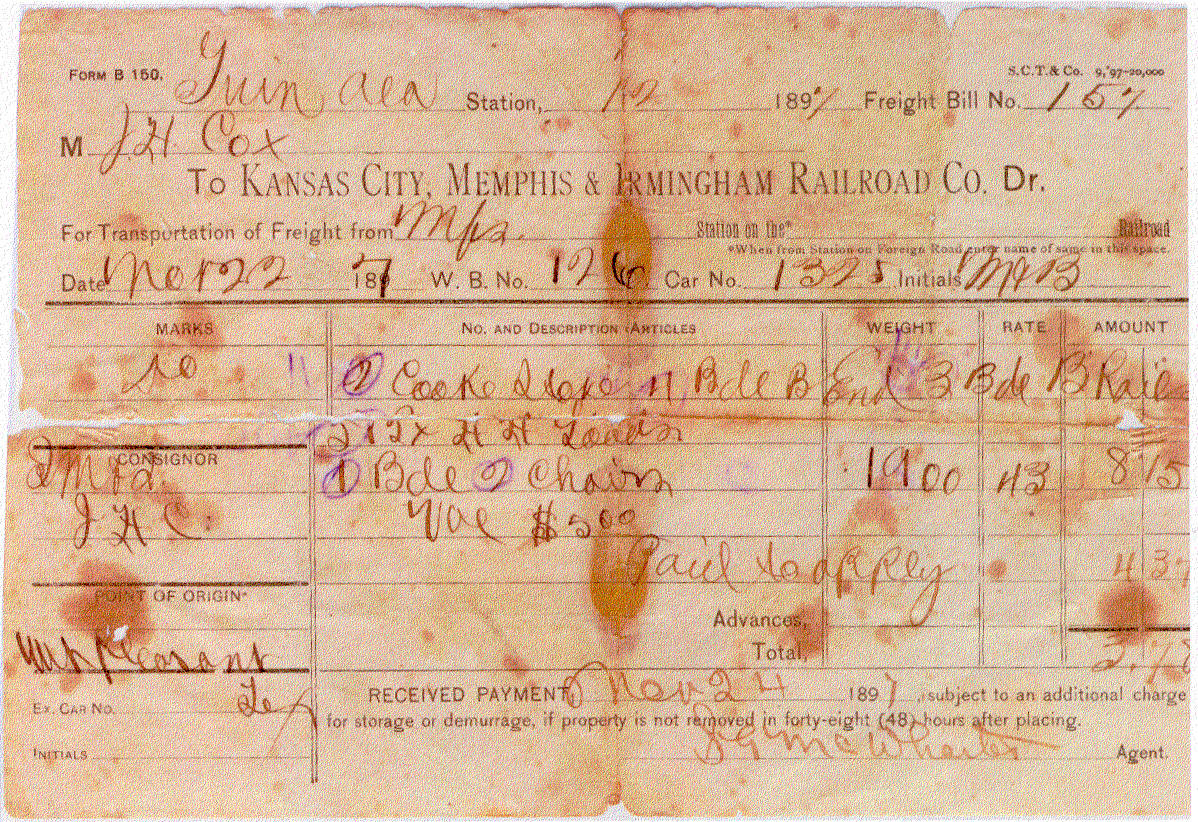 FORM B 150.
S.C.T.& Co. 9,'97-20,000
Guin Ala Station, 12 1897 Freight Bill No. 157
M J H Cox
To KANSAS CITY, MEMPHIS & IRMINGHAM RAILROAD CO. Dr.
For Transportation of Freight from Mfs. Station on the* Railroad
*When from Station on Foreign Road enter name of same in this space.
Date Nov 22 1897 W. B. No. 126 Car No. 1325 Initials
MARKS NO. AND DESCRIPTION ARTICLES WEIGHT RATE AMOUNT
2 Cooke Bde B End 3 Bde B
H H
CONSIGNOR
1 Bde 2 Chairs 1900 43 8 15
J H C. Val $5 00
Paid to apply 4 37
POINT OF ORIGIN*
Advances,
Mt Pleasant Total, 3.78
Tex
RECEIVED PAYMENT Nov 24 1897, subject to an additional charge
EX. CAR NO.
for storage or demurrage, if property is not removed in forty-eight (48) hours after placing.
INITIALS McWhorter Agent.